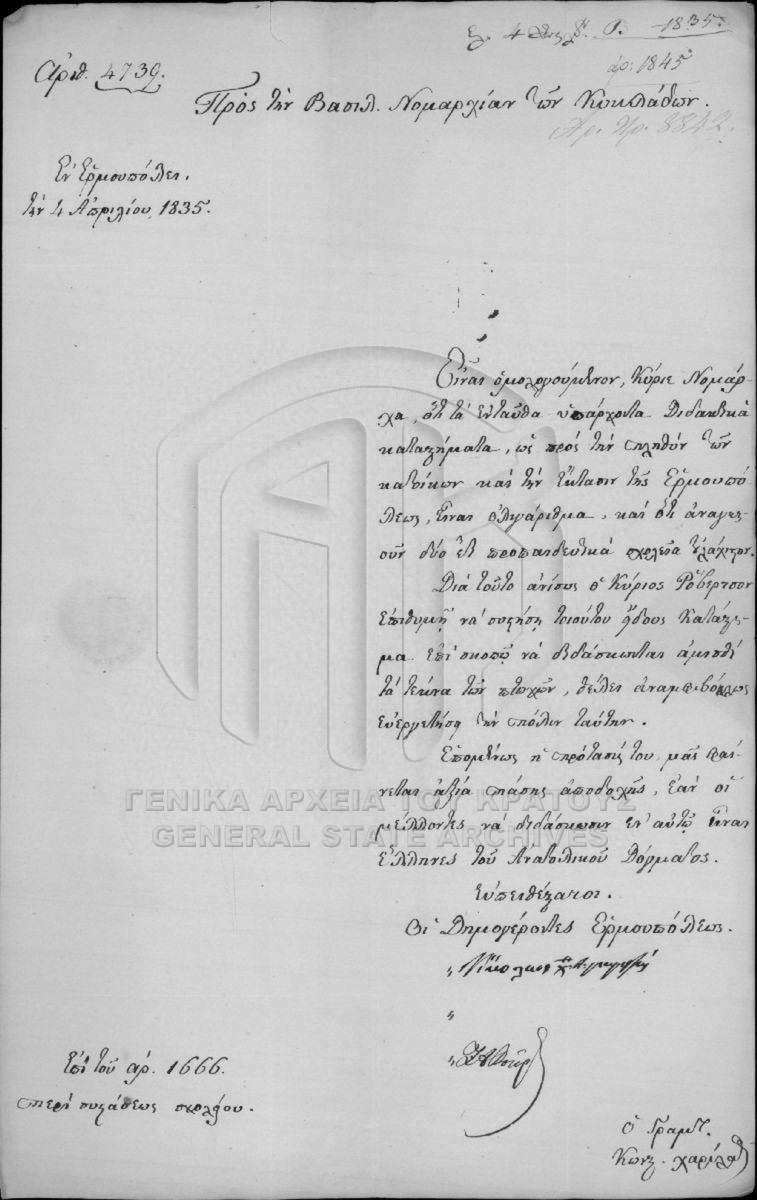 Ἀριθ. 4739.
1835.
ἀρ: 1845
Πρὸς τὴν Βασιλ. Νομαρχίαν τῶν Κυκλάδων.
Αρ. Πρ. 8842.
Ἐν Ἑρμουπόλει.
τὴν 4 Ἀπριλίου, 1835.
Εἶναι ὁμολογούμενον, Κύριε Νομάρ-
χα, ὅτι τὰ ἐνταῦθα ὑπάρχοντα Διδακτικὰ
καταστήματα, ὡς πρὸς τὴν πληθὺν τῶν
κατοίκων καὶ τὴν ἔκτασιν τῆς Ἑρμουπό-
λεως, εἶναι ὀλιγάριθμα, καὶ ὅτι ἀναγκ-
οῦν δύο ἔτι προπαιδευτικὰ σχολεῖα ἐλάχιστον.
Διὰ τοῦτο ἀνίσως ὁ Κύριος Ῥόβερτσον
ἐπιθυμῇ νὰ συστήσῃ τοιούτου εἴδους Κατάστη-
μα ἐπὶ σκοπῷ νὰ διδάσκωνται ἀμισθὶ
τὰ τέκνα τῶν πτωχῶν, θέλει ἀναμφιβόλως
εὐεργετήσῃ τὴν πόλιν ταύτην.
Ἑπομένως ἡ πρότασίς του, μᾶς φαί-
νεται ἀξία πάσης ἀποδοχῆς, ἐὰν οἱ
μέλλοντες νὰ διδάσκωσιν ἐν αὐτῷ ἦναι
Ἕλληνες τοῦ Ἀνατολικοῦ Δόγματος.
ΓΕΝΙΚΑ ΑΡΧΕΙΑ ΤΟΥ ΚΡΑΤΟΥΣ
GENERAL STATE ARCHIVES
Εὐπειθέστατοι.
Οἱ Δημογέροντες Ἑρμουπόλεως.
Νικόλαος
Ἐπὶ τοῦ ἀρ. 1666.
περὶ συστάσεως σχολείου.
Ὁ Γραμτ.
Κωνστ.